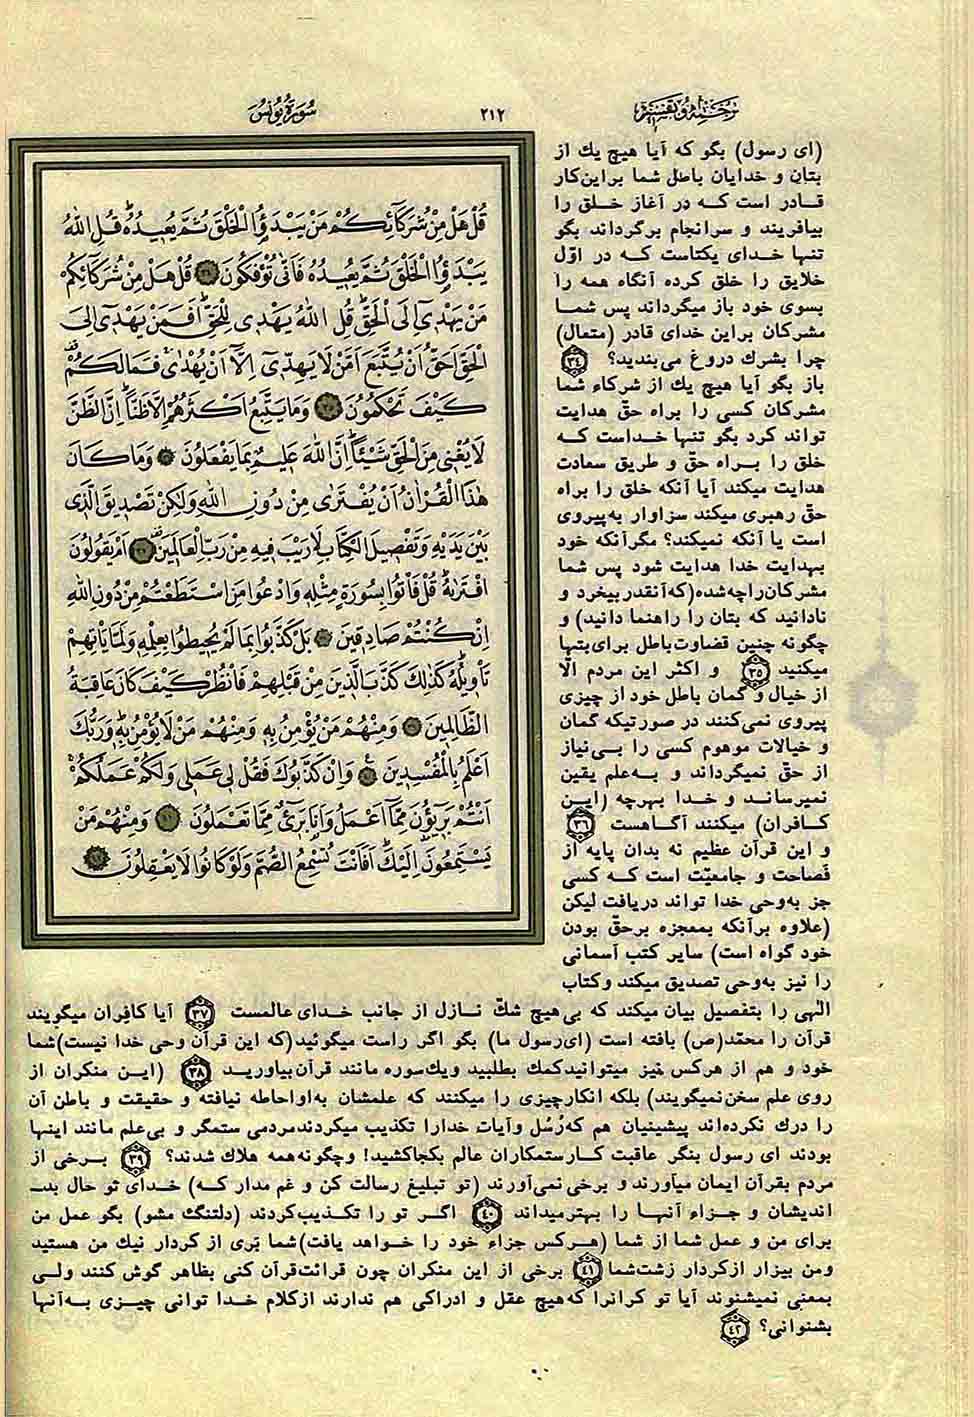 سُورَةُ يُونُسَ
٢١٢
ترجمه و تفسیر
قُلْ هَلْ مِنْ شُرَكَآئِكُمْ مَنْ يَبْدَؤُا الْخَلْقَ ثُمَّ يُعِيدُهُ قُلِ اللهُ
يَبْدَؤُا الْخَلْقَ ثُمَّ يُعِيدُهُ فَاَنّٰى تُؤْفَكُونَ ٣٤ قُلْ هَلْ مِنْ شُرَكَآئِكُمْ
مَنْ يَهْدِي اِلَى الْحَقِّ قُلِ اللهُ يَهْدِي لِلْحَقِّ اَفَمَنْ يَهْدِي اِلَى
الْحَقِّ اَحَقُّ اَنْ يُتَّبَعَ اَمَّنْ لَا يَهِدِّي اِلَّا اَنْ يُهْدٰى فَمَا لَكُمْ
كَيْفَ تَحْكُمُونَ ٣٥ وَمَا يَتَّبِعُ اَكْثَرُهُمْ اِلَّا ظَنًّا اِنَّ الظَّنَّ
لَا يُغْنِي مِنَ الْحَقِّ شَيْئًا اِنَّ اللهَ عَلِيمٌ بِمَا يَفْعَلُونَ ٣٦ وَمَا كَانَ
هٰذَا الْقُرْاٰنُ اَنْ يُفْتَرٰى مِنْ دُونِ اللهِ وَلٰكِنْ تَصْدِيقَ الَّذِي
بَيْنَ يَدَيْهِ وَتَفْصِيلَ الْكِتَابِ لَا رَيْبَ فِيهِ مِنْ رَبِّ الْعَالَمِينَ ٣٧ اَمْ يَقُولُونَ
افْتَرٰيهُ قُلْ فَأْتُوا بِسُورَةٍ مِثْلِهِ وَادْعُوا مَنِ اسْتَطَعْتُمْ مِنْ دُونِ اللهِ
اِنْ كُنْتُمْ صَادِقِينَ ٣٨ بَلْ كَذَّبُوا بِمَا لَمْ يُحِيطُوا بِعِلْمِهِ وَلَمَّا يَأْتِهِمْ
تَأْوِيلُهُ كَذٰلِكَ كَذَّبَ الَّذِينَ مِنْ قَبْلِهِمْ فَانْظُرْ كَيْفَ كَانَ عَاقِبَةُ
الظَّالِمِينَ ٣٩ وَمِنْهُمْ مَنْ يُؤْمِنُ بِهِ وَمِنْهُمْ مَنْ لَا يُؤْمِنُ بِهِ وَرَبُّكَ
اَعْلَمُ بِالْمُفْسِدِينَ ٤٠ وَاِنْ كَذَّبُوكَ فَقُلْ لِي عَمَلِي وَلَكُمْ عَمَلُكُمْ
اَنْتُمْ بَرِيۤؤُنَ مِمَّا اَعْمَلُ وَاَنَا بَرِيۤءٌ مِمَّا تَعْمَلُونَ ٤١ وَمِنْهُمْ مَنْ
يَسْتَمِعُونَ اِلَيْكَ اَفَاَنْتَ تُسْمِعُ الصُّمَّ وَلَوْ كَانُوا لَا يَعْقِلُونَ ٤٢
(ای رسول) بگو که آیا هیچ یك از
بتان و خدایان باطل شما براین‌کار
قادر است که در آغاز خلق را
بیافریند و سرانجام برگرداند بگو
تنها خدای یکتاست که در اوّل
خلایق را خلق کرده آنگاه همه را
بسوی خود باز میگرداند پس شما
مشرکان براین خدای قادر (متعال)
چرا بشرك دروغ می‌بندید؟ ٣٤
باز بگو آیا هیچ یك از شرکاء شما
مشرکان کسی را براه حقّ هدایت
تواند کرد بگو تنها خداست که
خلق را براه حقّ و طریق سعادت
هدایت میکند آیا آنکه خلق را براه
حقّ رهبری میکند سزاوار به‌پیروی
است یا آنکه نمیکند؟ مگرآنکه خود
بهدایت خدا هدایت شود پس شما
مشرکان‌راچه‌شده(که‌آنقدربیخرد و
نادانید که بتان را راهنما دانید) و
چگونه چنین قضاوت‌باطل برای‌بتها
میکنید ٣٥ و اکثر این مردم الّا
از خیال و گمان باطل خود از چیزی
پیروی نمی‌کنند در صورتیکه گمان
و خیالات موهوم کسی را بی‌نیاز
از حقّ نمیگرداند و به‌علم یقین
نمیرساند و خدا بهرچه (این
کافران) میکنند آگاهست ٣٦
و این قرآن عظیم نه بدان پایه از
فصاحت و جامعیّت است که کسی
جز به‌وحی خدا تواند دریافت لیکن
(علاوه برآنکه بمعجزه برحقّ بودن
خود گواه است) سایر کتب آسمانی
را نیز به‌وحی تصدیق میکند وکتاب
الهی را بتفصیل بیان میکند که بی‌هیچ شكّ نازل از جانب خدای عالمست ٣٧ آیا کافران میگویند
قرآن را محمّد(ص) بافته است (ای‌رسول ما) بگو اگر راست میگوئید(که این قرآن وحی خدا نیست)شما
خود و هم از هرکس نیز میتوانیدکمك بطلبید ویك‌سوره مانند قرآن‌بیاورید ٣٨ (این منکران از
روی علم سخن‌نمیگویند) بلکه انکارچیزی را میکنند که علمشان به‌اواحاطه نیافته و حقیقت و باطن آن
را درك نکرده‌اند پیشینیان هم که‌رُسُل وآیات خدارا تکذیب میکردندمردمی ستمگر و بی‌علم مانند اینها
بودند ای رسول بنگر عاقبت کارستمکاران عالم بکجاکشید! وچگونه‌همه هلاك شدند؟ ٣٩ برخی از
مردم بقرآن ایمان میآورند و برخی نمی‌آورند (تو تبلیغ رسالت کن و غم مدار که) خدای تو حال بد-
اندیشان و جزاء آنها را بهترمیداند ٤٠ اگر تو را تکذیب‌کردند (دلتنگ مشو) بگو عمل من
برای من و عمل شما از شما (هرکس جزاء خود را خواهد یافت)شما بَری از کردار نیك من هستید
ومن بیزار ازکردار زشت‌شما ٤١ برخی از این منکران چون قرائت‌قرآن کنی بظاهر گوش کنند ولی
بمعنی نمیشنوند آیا تو کرانرا که‌هیچ عقل و ادراکی هم ندارند ازکلام خدا توانی چیزی به‌آنها
بشنوانی؟ ٤٢